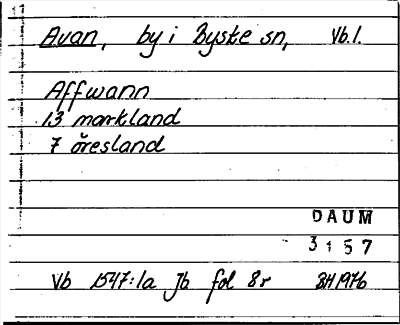 Avan, by i Byske sn, Vb.l.
Affwann
13 markland
7 öresland
DAUM
3157
Vb 1547:1a Jb fol 8r BH 1976